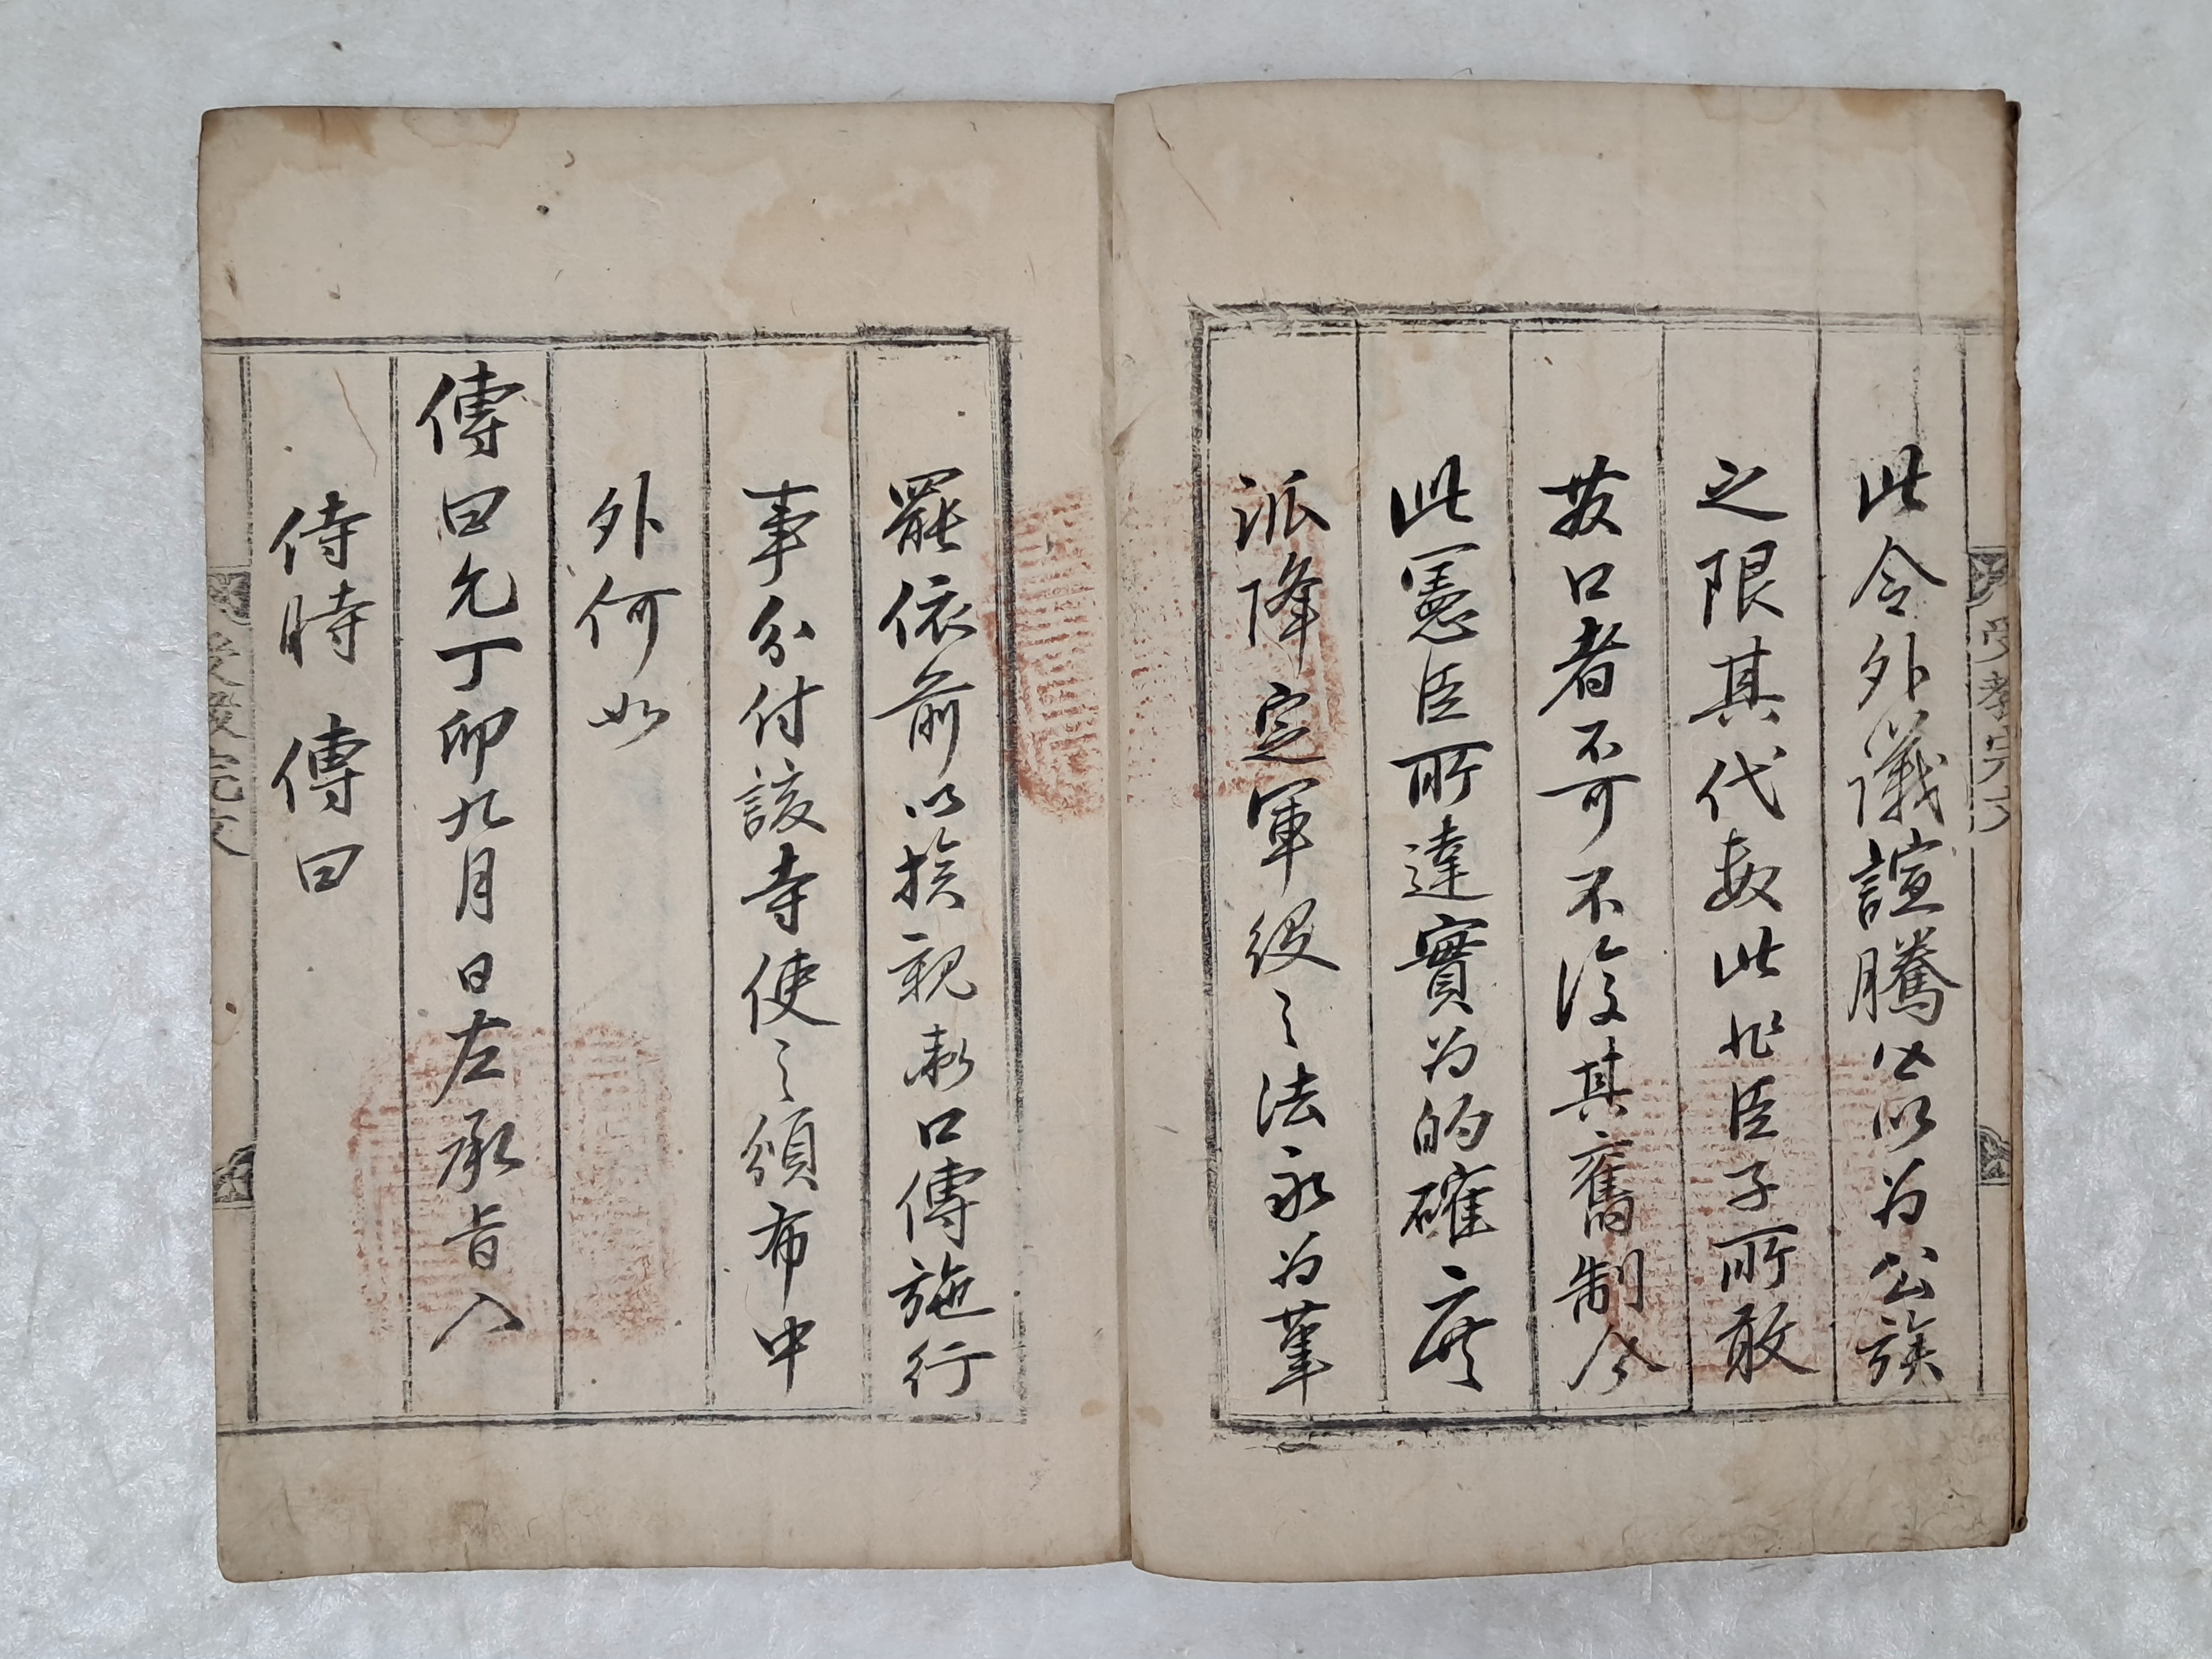 此令外議諠騰必以为公族
之限其代数此非臣子所敢
發口者不可不復其舊制今
此憲臣所達實为的確庶
派降定軍役之法永为革
罷依前以挨親敕口傳施行
事分付該寺使之頒布中
外何如
傳曰允丁卯九月日左承旨入
侍時 傳曰
受敎完文